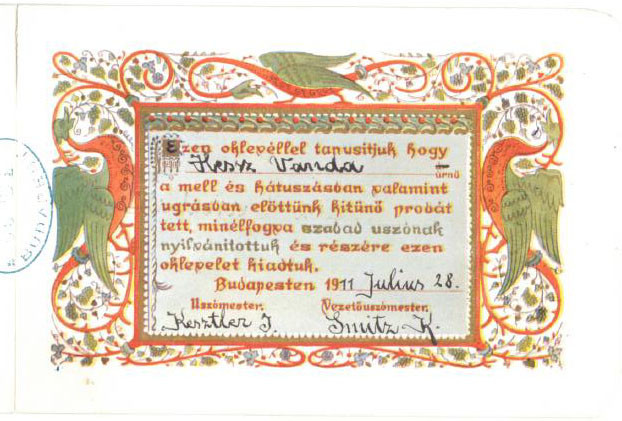 Ezen oklevéllel tanusitjuk hogy
Kesz Vanda úrnő
a mell és hátuszásban valamint
ugrásban előttünk kitünő probát
tett, minélfogva szabad uszónak
nyilvánitottuk és részére ezen
oklevelet kiadtuk.
Budapesten 1911 Julius 28.
Uszómester. Vezetőuszómester.
Kesztler J. Smutz K.
BUDAPEST